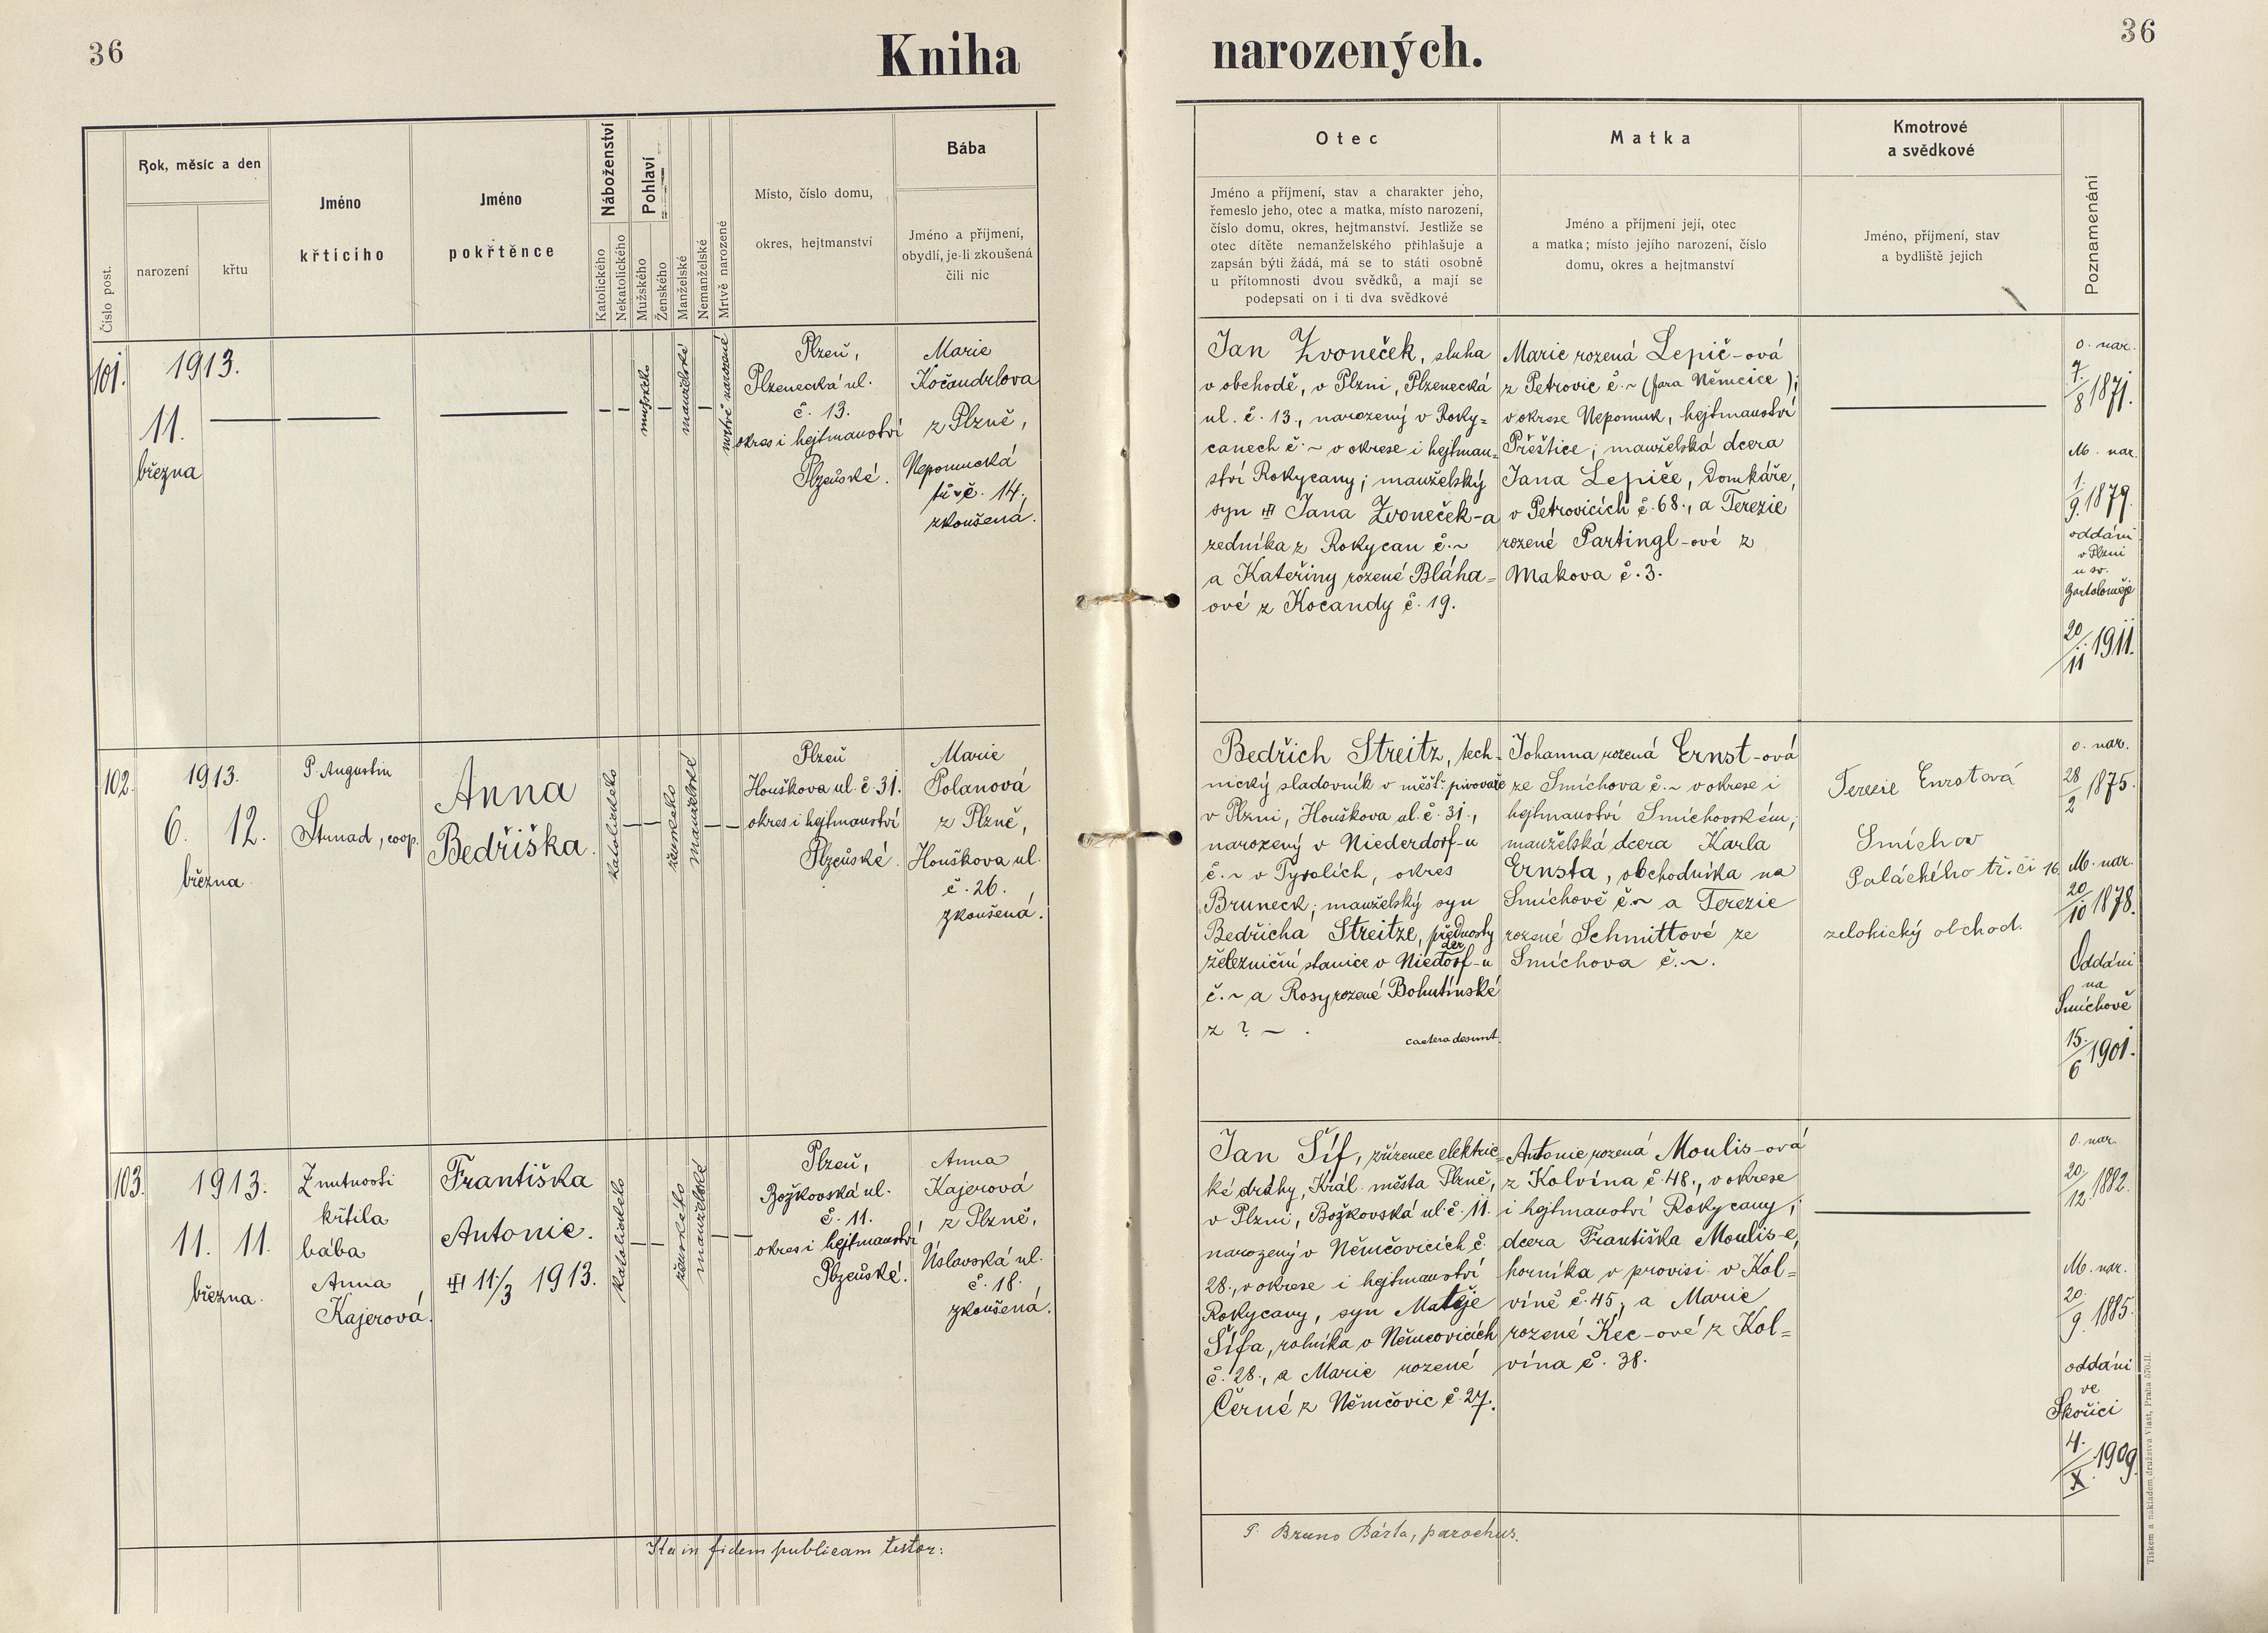 36
Kniha
narozených.
36
Číslo post.
Rok, měsíc a den
narození
křtu
Jméno
křtícího
Jméno
pokřtěnce
Náboženství
Katolického
Nekatolického
Pohlaví
Mužského
Ženského
Manželské
Nemanželské
Mrtvě narozené
Místo, číslo domu,
okres, hejtmanství
Bába
Jméno a příjmení,
obydlí, je-li zkoušená
čili nic
Otec
Jméno a příjmení, stav a charakter jeho,
řemeslo jeho, otec a matka, místo narození,
číslo domu, okres, hejtmanství. Jestliže se
otec dítěte nemanželského přihlašuje a
zapsán býti žádá, má se to státi osobně
u přítomnosti dvou svědků, a mají se
podepsati on i ti dva svědkové
Matka
Jméno a příjmení její, otec
a matka; místo jejího narození, číslo
domu, okres a hejtmanství
Kmotrové
a svědkové
Jméno, příjmení, stav
a bydliště jejich
Poznamenání
101.
1913.
11.
března
mužské
manželské
mrtvě narozené
Plzeň,
Plzenecká ul.
č. 13.
okres i hejtmanství
Plzeňské.
Marie
Kočandrlova
z Plzně,
Nepomucká
tř. č. 14,
zkoušená.
Jan Zvoneček, sluha
v obchodě, v Plzni, Plzenecká
ul. č. 13., narozený v Roky=
canech č. ~ v okrese i hejtman=
ství Rokycany; manželský
syn Jana Zvoneček-a
zedníka z Rokycan č. ~
a Kateřiny rozené Bláha=
ové z Kocandy č. 19.
Marie rozená Lepič-ová
z Petrovic č. ~ (fara Němčice);
v okrese Nepomuk, hejtmanství
Přeštice; manželská dcera
Jana Lepiče, Domkáře,
v Petrovicích č. 68., a Terezie
rozené Partingl-ové z
Makova č. 3.
o. nar.
7./8 1871.
M. nar.
1./9. 1879.
oddáni
v Plzni
u sv.
Bartoloměje
20/11 1911.
102.
1913.
6. 12.
března
P. Augustin
Strnad, coop.
Anna
Bedřiška.
katolické
ženské
manželské
Plzeň
Houškova ul. č. 31.
okres i hejtmanství
Plzeňské.
Marie
Polanová
z Plzně,
Houškova ul.
č. 26.
zkoušená.
Bedřich Streitz, tech-
nický sladovník v měšť. pivovaře
v Plzni, Houškova ul. č. 31.,
narozený v Niederdorf-u
č. ~ v Tyrolích, okres
Bruneck; manželský syn
Bedřicha Streitze, přednosty
železniční stanice v Niederdorf-u
č. ~ a Rosy rozené Bohutínské
z ? ~ .
caetera desunt.
Johanna rozená Ernst-ová
ze Smíchova č. ~ v okrese i
hejtmanství Smíchovském;
manželská dcera Karla
Ernsta, obchodníka na
Smíchově č. ~ a Terezie
rozené Schmittové ze
Smíchova č. ~.
Terezie Ernstová
Smíchov
Paláckého tř. čí 16.
obchod.
o. nar.
28/2 1875.
M. nar.
20/10 1878.
Oddáni
na
Smíchově
15./6 1901.
103.
1913.
11. 11.
března.
Z nutnosti
křtila
bába
Anna
Kajerová.
Františka
Antonie.
11./3 1913.
katolické
ženské
manželské
Plzeň,
Božkovská ul.
č. 11.
okres i hejtmanství
Plzeňské.
Anna
Kajerová
z Plzně,
Úslavská ul.
č. 18.
zkoušená.
Jan Šíf, zřízenec elektric=
ké dráhy, Král. města Plzně,
v Plzni, Božkovská ul. č. 11.
narozený v Němčovicích č.
28., v okrese i hejtmanství
Rokycany, syn Matěje
Šífa, rolníka v Němčovicích
č. 28., a Marie rozené
Černé z Němčovic č. 27.
Antonie rozená Moulis-ová
z Kolvína č. 48., v okrese
i hejtmanství Rokycany;
dcera Františka Moulis-e,
horníka v provisi v Kol=
víně č. 45, a Marie
rozené Kec-ové z Kol=
vína č. 38.
O. nar.
20./12. 1882.
M. nar.
20./9. 1885.
oddáni
ve
Skořici
4./X. 1909.
Ita in fidem publicam testor:
P. Bruno Bárta, parochus.
Tiskem a nákladem družstva Vlast, Praha 570-II.